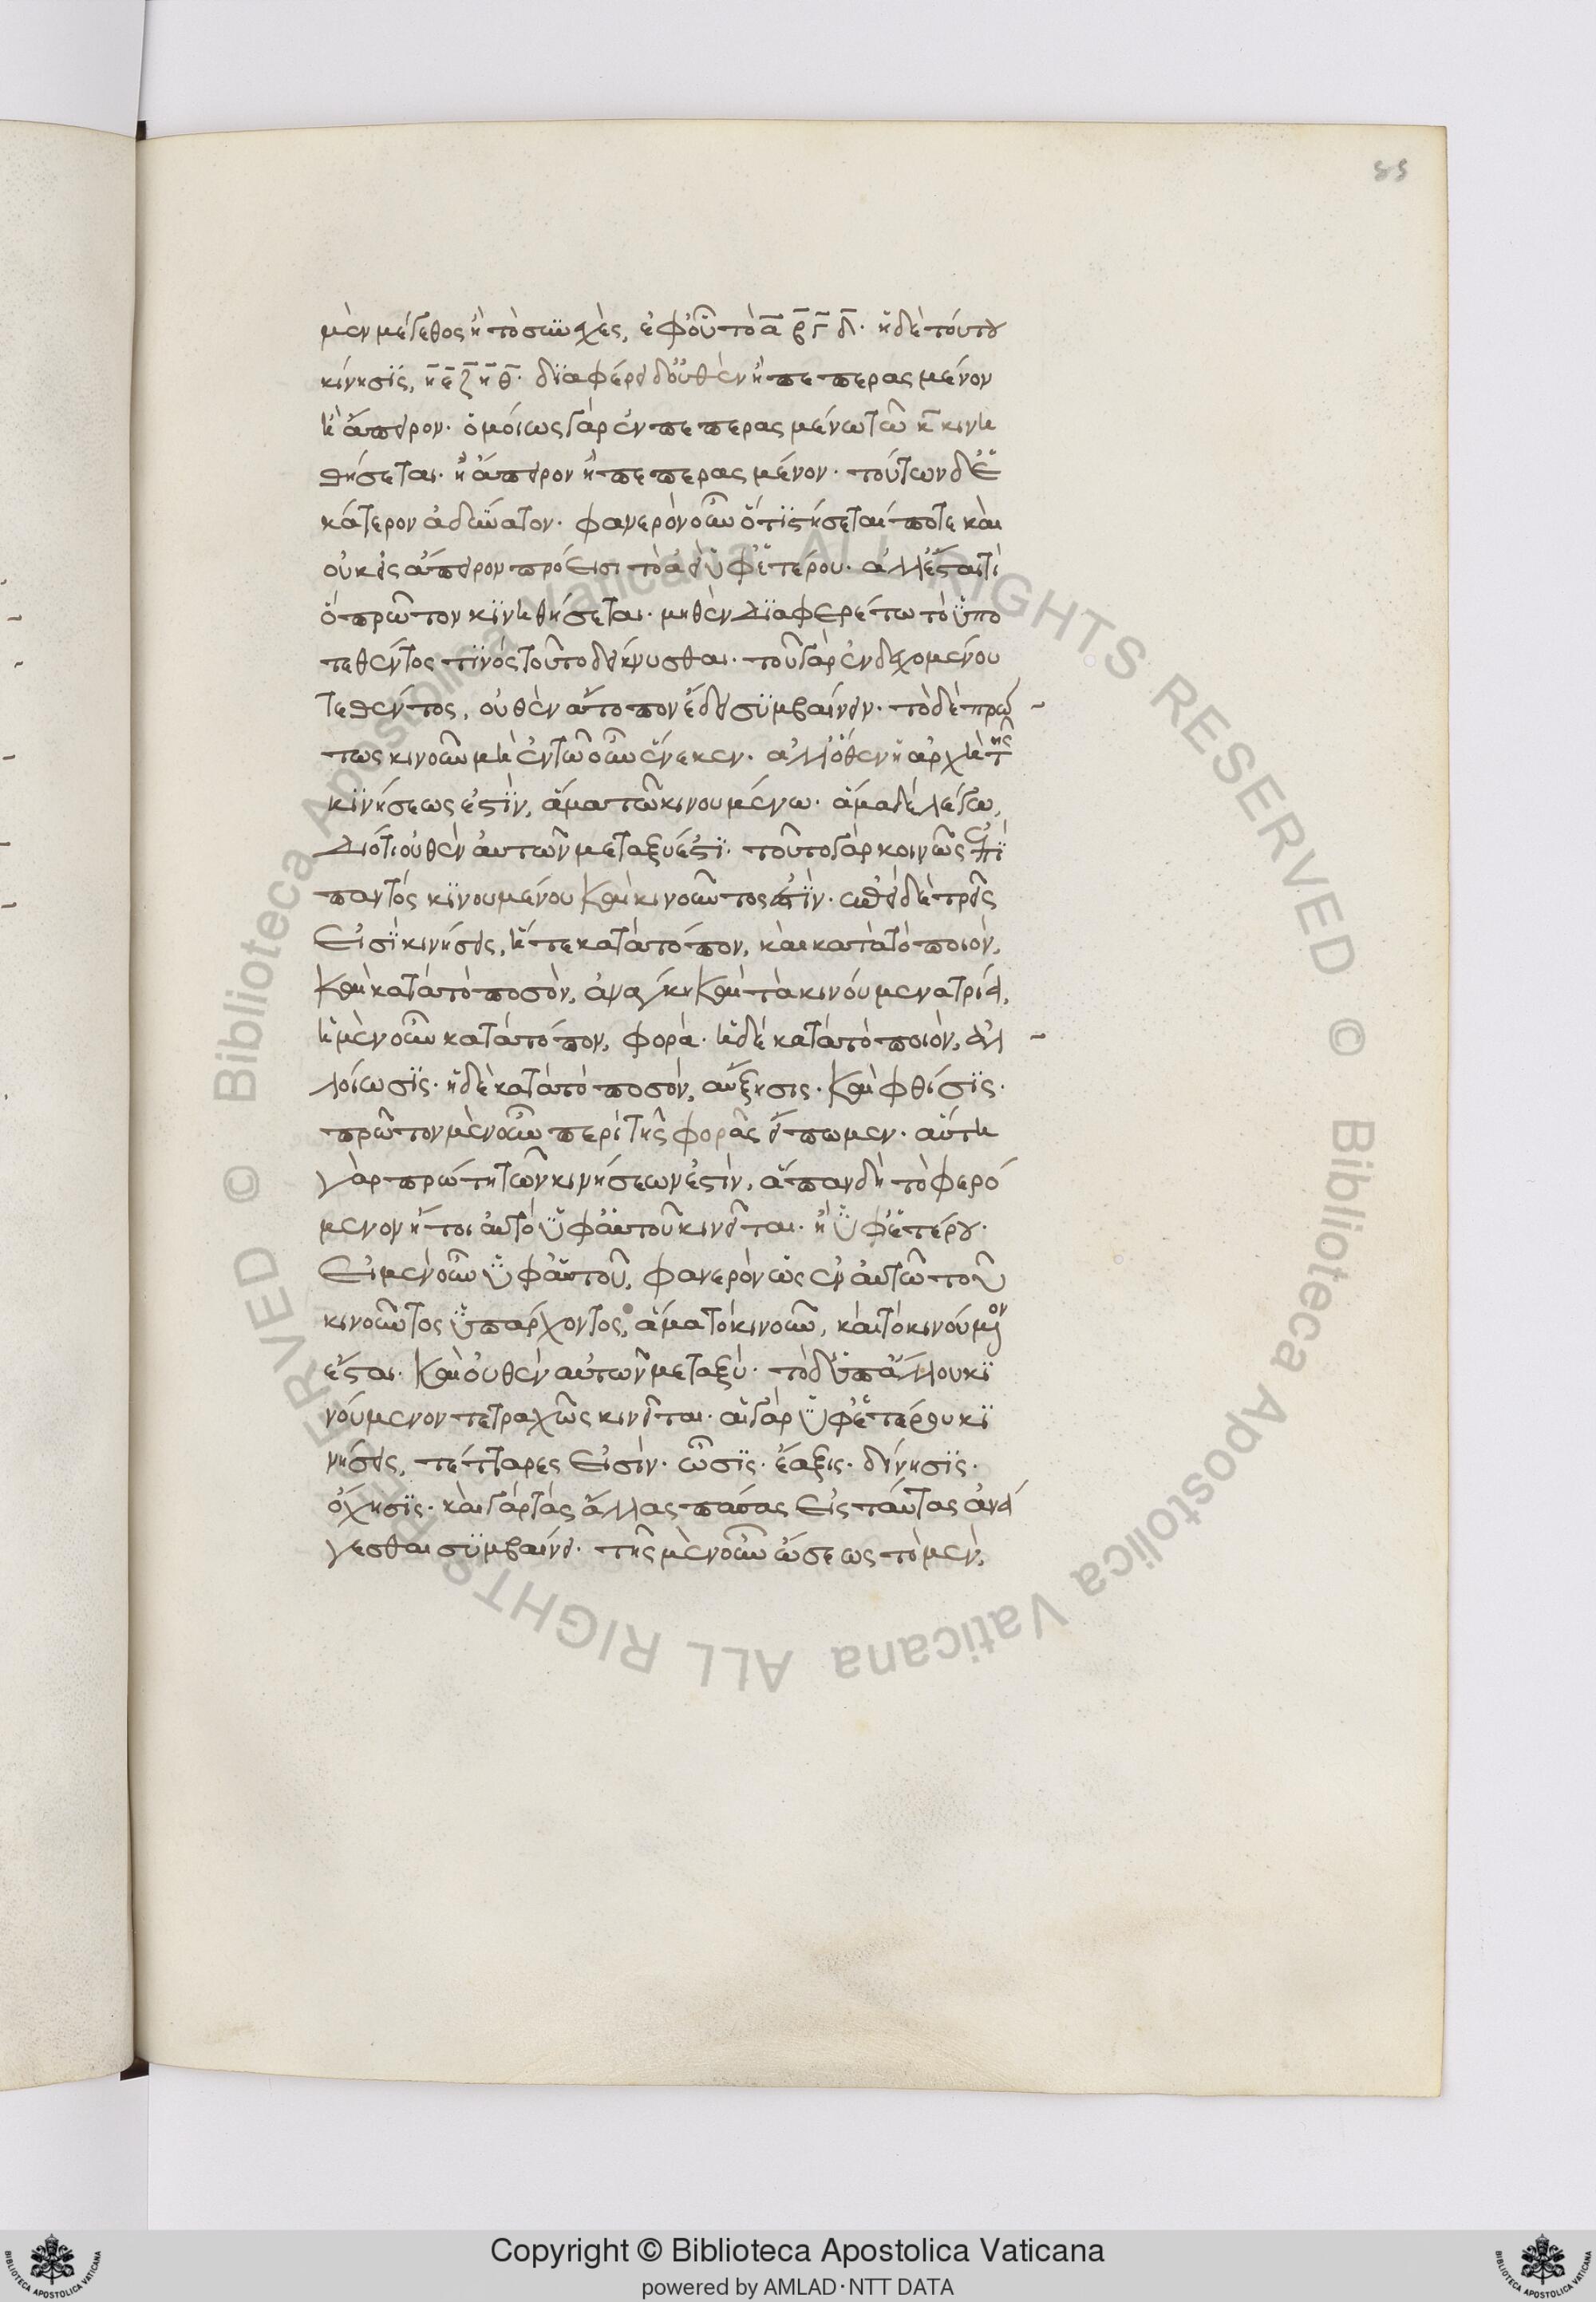 85
μὲν μέγεθος ἢ τὸ συνεχὲς, ἐφ οὗ τὸ α β γ δ. ἡ δὲ τούτου
κίνησις, ἡ ε ζ η θ. διαφέρει δ οὐθὲν ἢ πεπερασμένον
ἢ ἄπειρον. ὁμοίως γὰρ ἐν πεπερασμένω τῶ κ κινη
θήσεται. ἢ ἄπειρον ἢ πεπερασμένον. τούτων δ ἑ
κάτερον ἀδύνατον. φανερὸν οὖν ὅτι στήσεταί ποτε καὶ
οὐκ εἰς ἄπειρον πρόεισι τὸ ἀεὶ ὑφ ἑτέρου. ἀλλ ἔσται τι
ὃ πρῶτον κινηθήσεται. μηθὲν διαφερέτω τὸ ὑπο
τεθέντος τινός τοῦτο δείκνυσθαι. τοῦ γὰρ ἐνδεχομένου
τεθέντος, οὐθὲν ἄτοπον ἔδει συμβαίνειν. τὸ δὲ πρώ
τως κινοῦν μὴ ἐν τῶ οὗ ἕνεκεν. ἀλλ ὅθεν ἡ ἀρχὴ τῆς
κινήσεως ἐστὶν, ἅμα τῶ κινουμένω. ἅμα δὲ λέγω,
διότι οὐθὲν ἀυτῶν μεταξύ ἐστι. τοῦτο γὰρ κοινῶς ἐπὶ
παντός κινουμένου καὶ κινοῦντος ἐστὶν. ἐπεὶ δὲ τρεῖς
εἰσὶ κινήσεις, ἥ τε κατὰ τόπον, καὶ κατὰ τὸ ποιὸν,
καὶ κατὰ τὸ ποσὸν, ἀνάγκη καὶ τὰ κινούμενα τρία,
ἡ μὲν οὖν κατὰ τόπον, φορὰ. ἡ δὲ κατὰ τὸ ποιὸν, ἀλ
λοίωσις. ἡ δὲ κατὰ τὸ ποσὸν, αὔξησις. καὶ φθίσις.
πρῶτον μὲν οὖν περὶ τῆς φορᾶς εἴπωμεν. αὕτη
γὰρ πρώτη τῶν κινήσεων ἐστὶν, ἅπαν δὴ τὸ φερό
μενον ἤτοι ἀυτὸ ὑφ ἁυτοῦ κινεῖται. ἢ ὑφ ἑτέρου.
εἰ μὲν οὖν ὑφ ἁυτοῦ, φανερὸν ὡς ἐν ἀυτῶ τοῦ
κινοῦντος ὑπάρχοντος, ἅμα τὸ κινοῦν, καὶ τὸ κινούμενον
ἔσται. καὶ οὐθὲν αὐτῶν μεταξύ. τὸ δ ὑπ ἄλλου κι
νούμενον τετραχῶς κινεῖται. αἱ γὰρ ὑφ ἑτέρου κι
νήσεις, τέτταρες εἰσὶν. ὦσις. ἕλξις. δίνησις.
ὄχησις. καὶ γὰρ τὰς ἄλλας πάσας εἰς ταύτας ἀνά
γεσθαι συμβαίνει. τῆς μὲν οὖν ὤσεως τὸ μὲν,
Copyright © Biblioteca Apostolica Vaticana
powered by AMLAD·NTT DATA